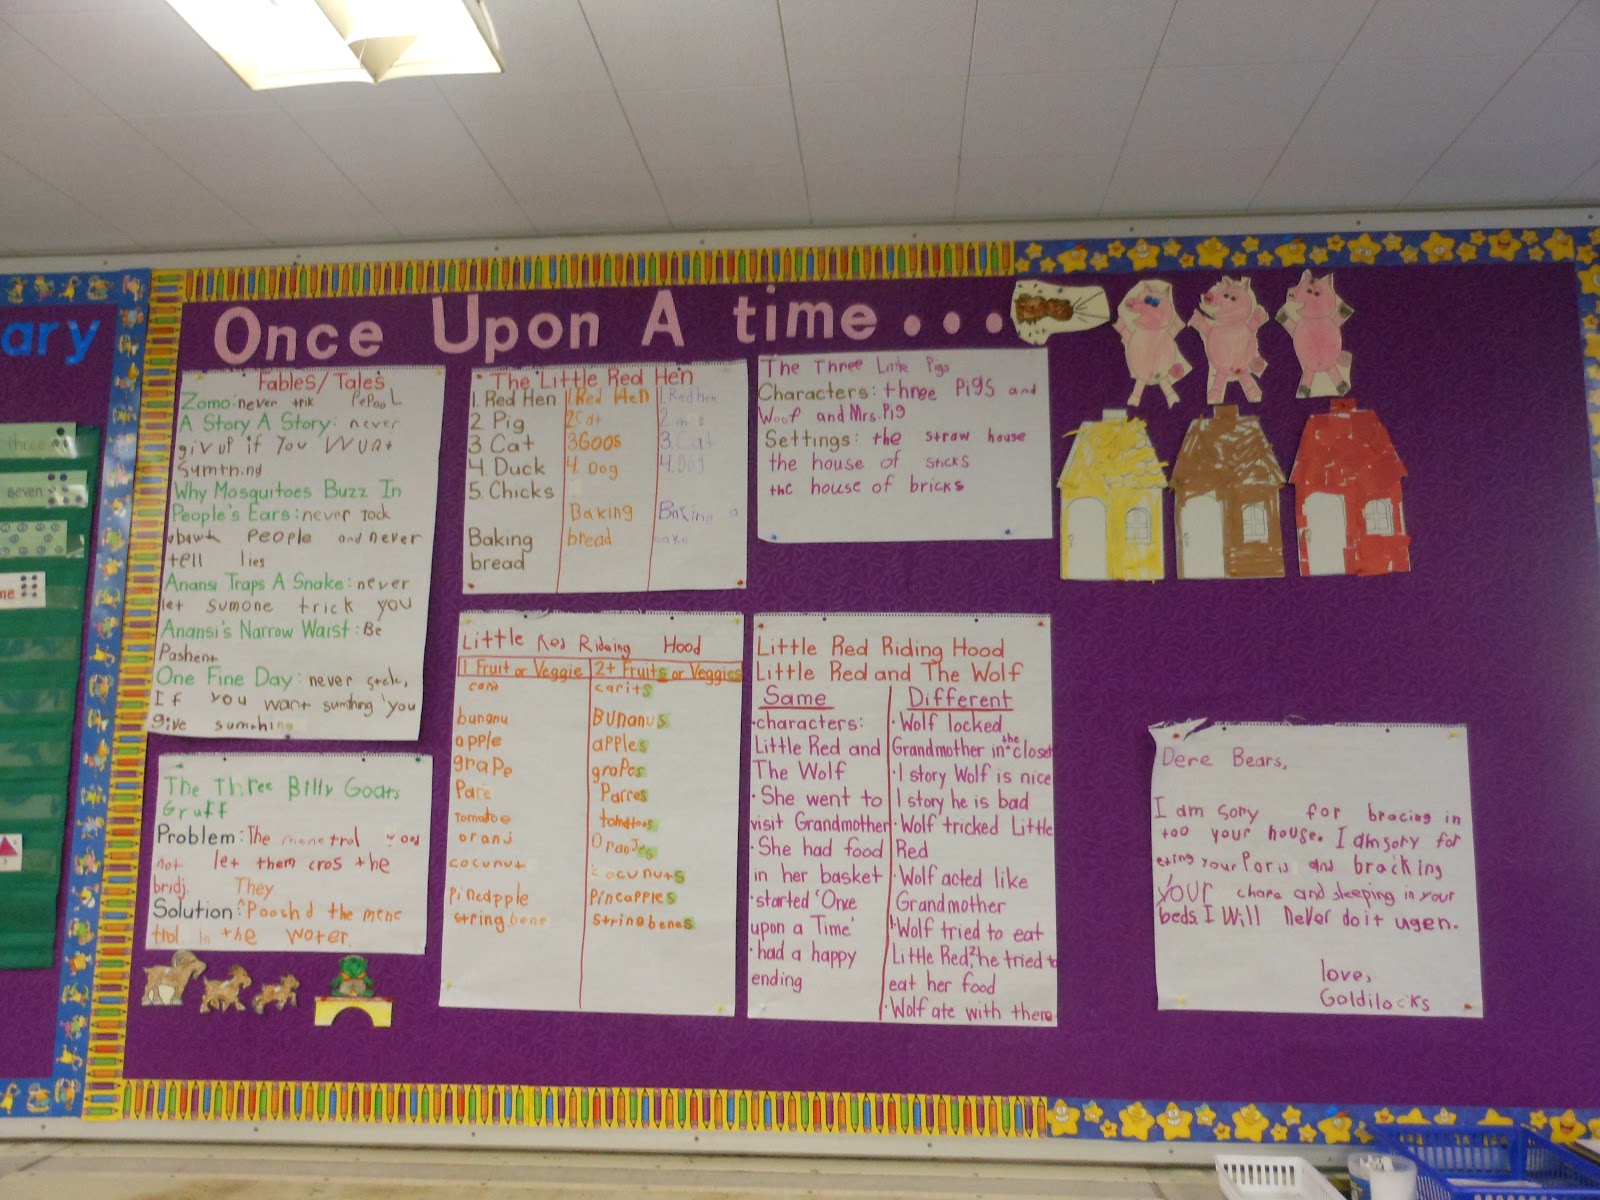 ary
three
seven
me
Once Upon A time...
Fables/Tales
Zomo: never trik PePooL
A Story A Story: never
giv uf if You WUnt
Sumthing
Why Mosquitoes Buzz In
People's Ears: never Tock
abawt PEOPLE and never
tell lies
Anansi Traps A Snake: never
let sumone trick you
Anansi's Narrow Waist: Be
Pashent
One Fine Day: never stele,
If you want sumthing you
give sumthing
The Three Billy Goats
Gruff
Problem: The mene trol wod
not let them cros the
bridj.
They
Solution: Pooshd the mene
trol in the woter.
The Little Red Hen
1. Red Hen
2 Pig
3 Cat
4 Duck
5. Chicks
Baking
bread
1. Red Hen
2 Cat
3 Goos
4. Dog
Baking
bread
1. Red hen
2
3. Cat
4. Dog
Baking a
cake
Little Red Riding Hood
1 Fruit or Veggie 2+ Fruits or Veggies
carit carits
bununu Bununus
apple apples
grape grapes
Pare Parres
tomatoe tomatoes
oranj Oranjes
cocunut cocunuts
pineapple Pineapples
string bene string benes
The Three Little Pigs
Characters: three Pigs and
Woof and Mrs. Pig
Settings: the straw house
the house of sticks
the house of bricks
Little Red Riding Hood
Little Red and The Wolf
Same
• characters:
Little Red and
The Wolf
• She went to
visit Grandmother
• She had food
in her basket
• started 'Once
upon a Time'
• had a happy
ending
Different
• Wolf locked
Grandmother in the closet
• 1 story Wolf is nice
1 story he is bad
• Wolf tricked Little
Red
• Wolf acted like
Grandmother
• Wolf tried to eat
Little Red, he tried to
eat her food
• Wolf ate with them
Dere Bears,
I am sory for bracing in
too your house. I am sory for
eting your Poris and bracking
your chare and sleeping in your
beds. I Will Never do it ugen.
love,
Goldilocks